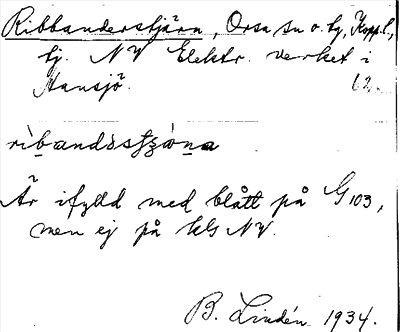 Ribbanderstjärn, Orsa sn o. hg, Koppl.,
tj. NV Elektr. verket i
Hansjö. 62.
ribandstjärna
Är ifylld med blått på G 103,
men ej på kG NV.
B. Lindén 1934.